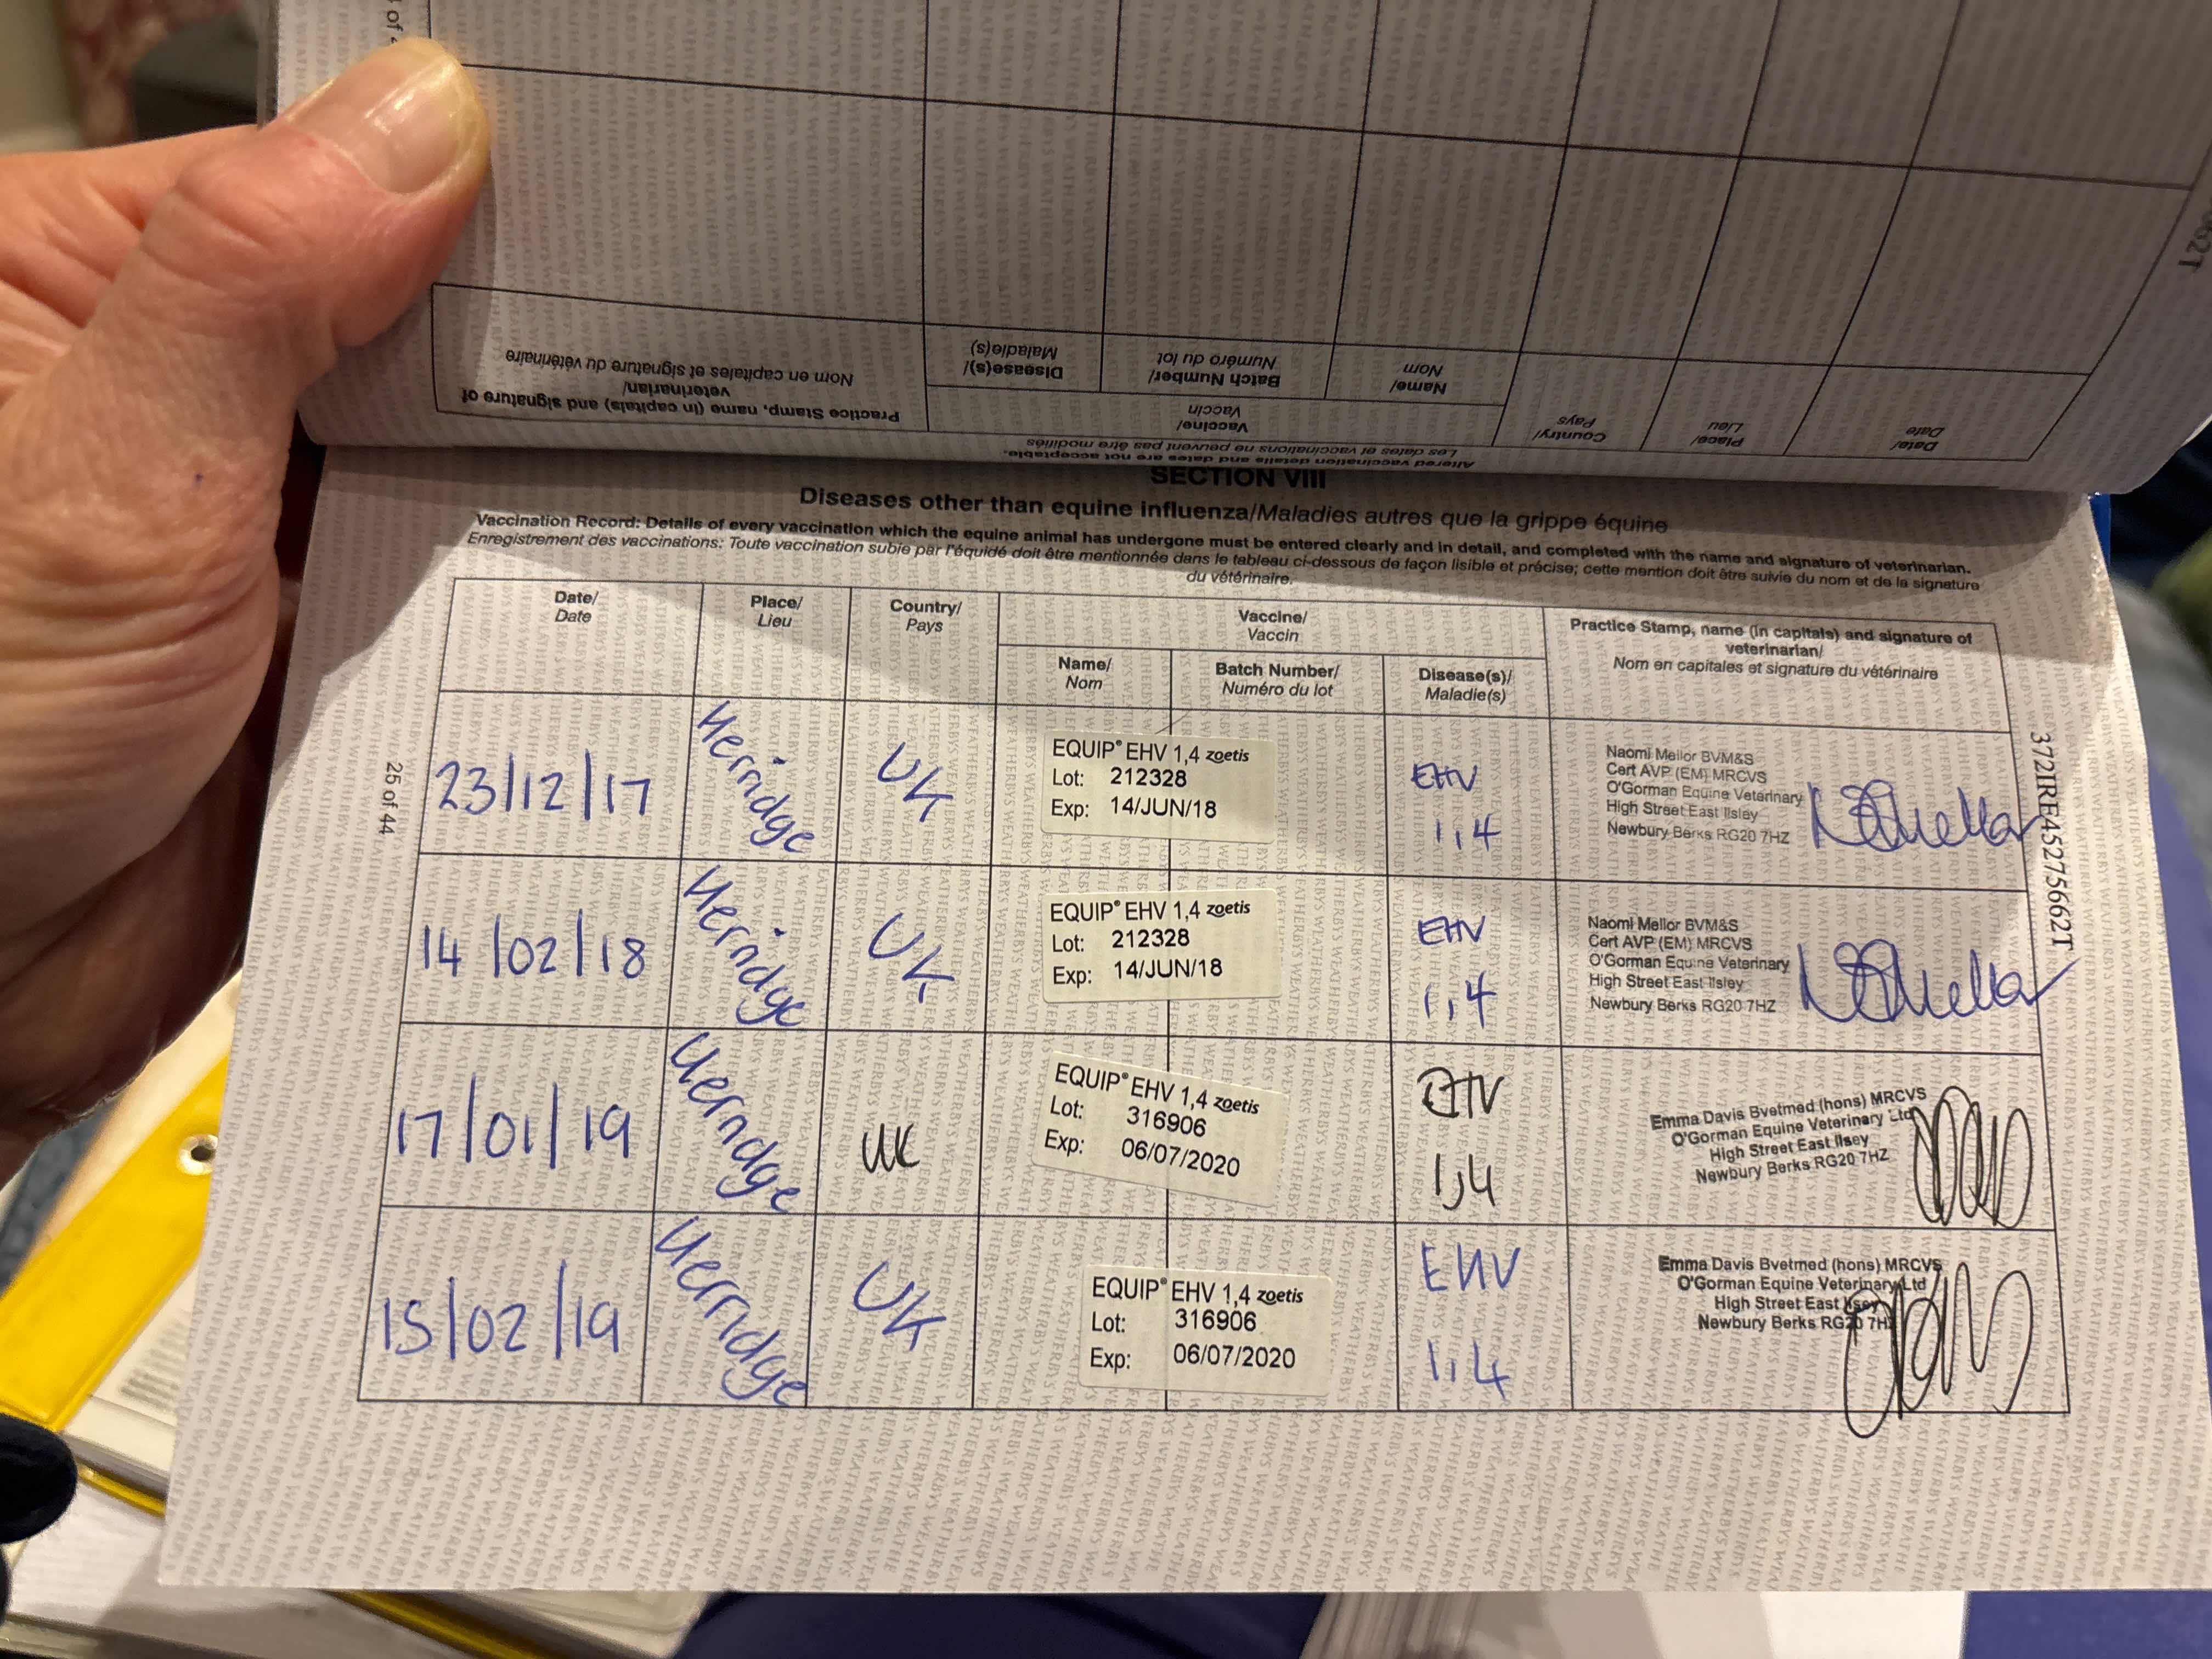 Practice Stamp, name (in capitals) and signature of
veterinarian/
Nom en capitales et signature du vétérinaire
Disease(s)/
Maladie(s)
Batch Number/
Numéro du lot
Name/
Nom
Vaccine/
Vaccin
Country/
Pays
Place/
Lieu
Date/
Date
Altered vaccination details and dates are not acceptable.
Les dates et vaccinations ne peuvent pas être modifiés
SECTION VIII
Diseases other than equine influenza/Maladies autres que la grippe équine
Vaccination Record: Details of every vaccination which the equine animal has undergone must be entered clearly and in detail, and completed with the name and signature of veterinarian.
Enregistrement des vaccinations: Toute vaccination subie par l'équidé doit être mentionnée dans le tableau ci-dessous de façon lisible et précise; cette mention doit être suivie du nom et de la signature
du vétérinaire.
Date/
Date
Place/
Lieu
Country/
Pays
Vaccine/
Vaccin
Name/
Nom
Batch Number/
Numéro du lot
Disease(s)/
Maladie(s)
Practice Stamp, name (in capitals) and signature of
veterinarian/
Nom en capitales et signature du vétérinaire
23/12/17
Herridge
UK
EQUIP® EHV 1,4 zoetis
Lot: 212328
Exp: 14/JUN/18
EHV
1,4
Naomi Mellor BVM&S
Cert AVP (EM) MRCVS
O'Gorman Equine Veterinary
High Street East Ilsley
Newbury Berks RG20 7HZ
14/02/18
Herridge
UK
EQUIP® EHV 1,4 zoetis
Lot: 212328
Exp: 14/JUN/18
EHV
1,4
Naomi Mellor BVM&S
Cert AVP (EM) MRCVS
O'Gorman Equine Veterinary
High Street East Ilsley
Newbury Berks RG20 7HZ
17/01/19
Herridge
UK
EQUIP® EHV 1,4 zoetis
Lot: 316906
Exp: 06/07/2020
EHV
1,4
Emma Davis Bvetmed (hons) MRCVS
O'Gorman Equine Veterinary Ltd
High Street East Ilsey
Newbury Berks RG20 7HZ
15/02/19
Herridge
UK
EQUIP® EHV 1,4 zoetis
Lot: 316906
Exp: 06/07/2020
EHV
1,4
Emma Davis Bvetmed (hons) MRCVS
O'Gorman Equine Veterinary Ltd
High Street East Ilsey
Newbury Berks RG20 7HZ
25 of 44
372IRE4527562T